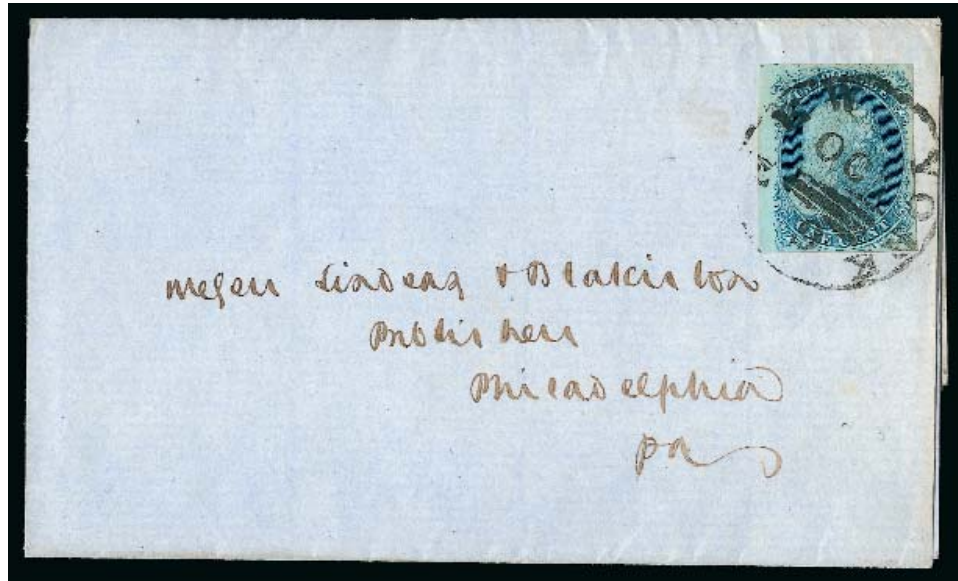 NEW YORK
OC
Messrs Lindsay & Blakiston
Publishers
Philadelphia
Pa